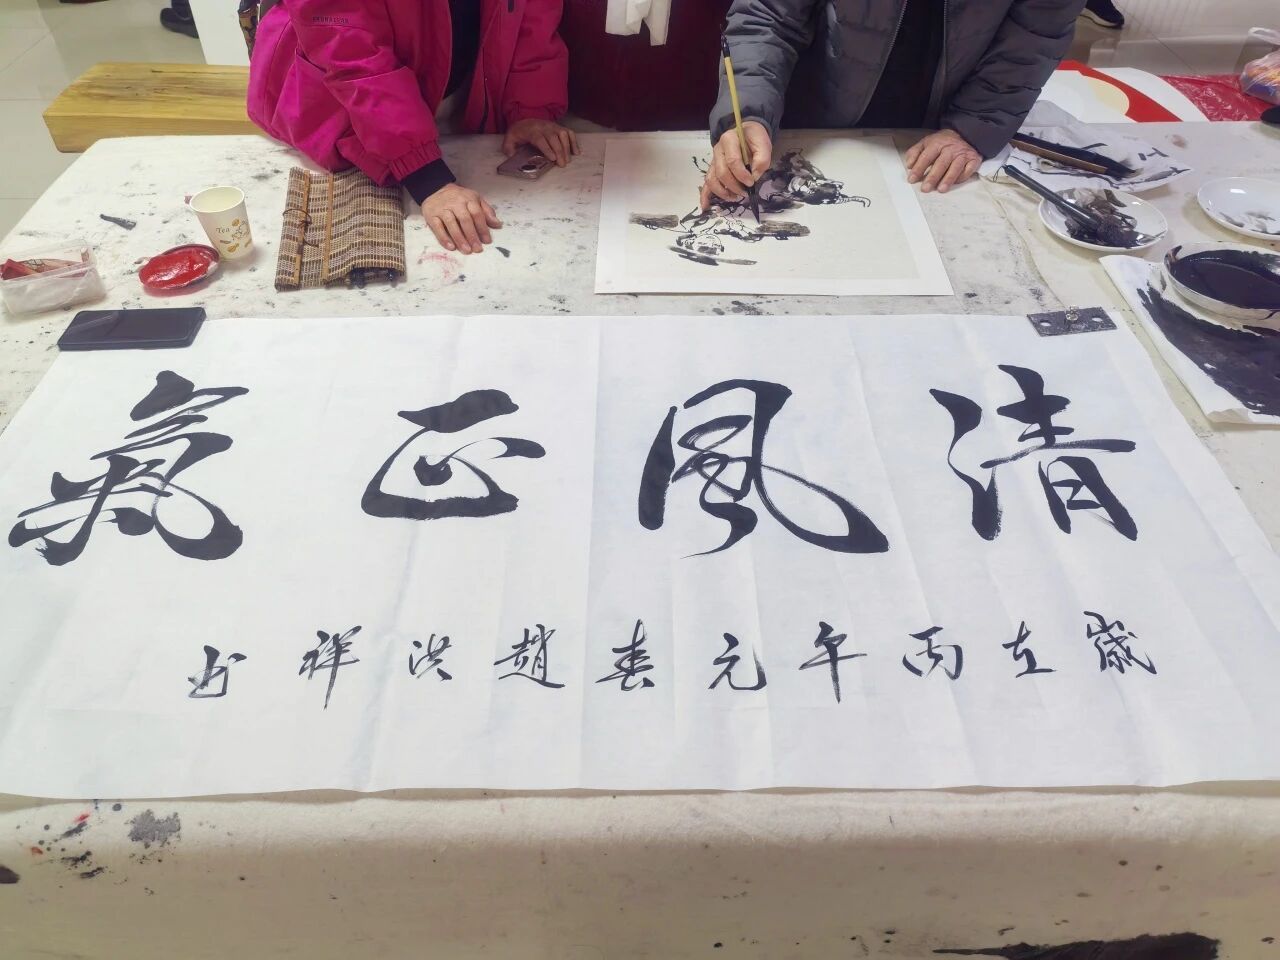 清風正氣
歲在丙午元春趙洪祥书
Tea